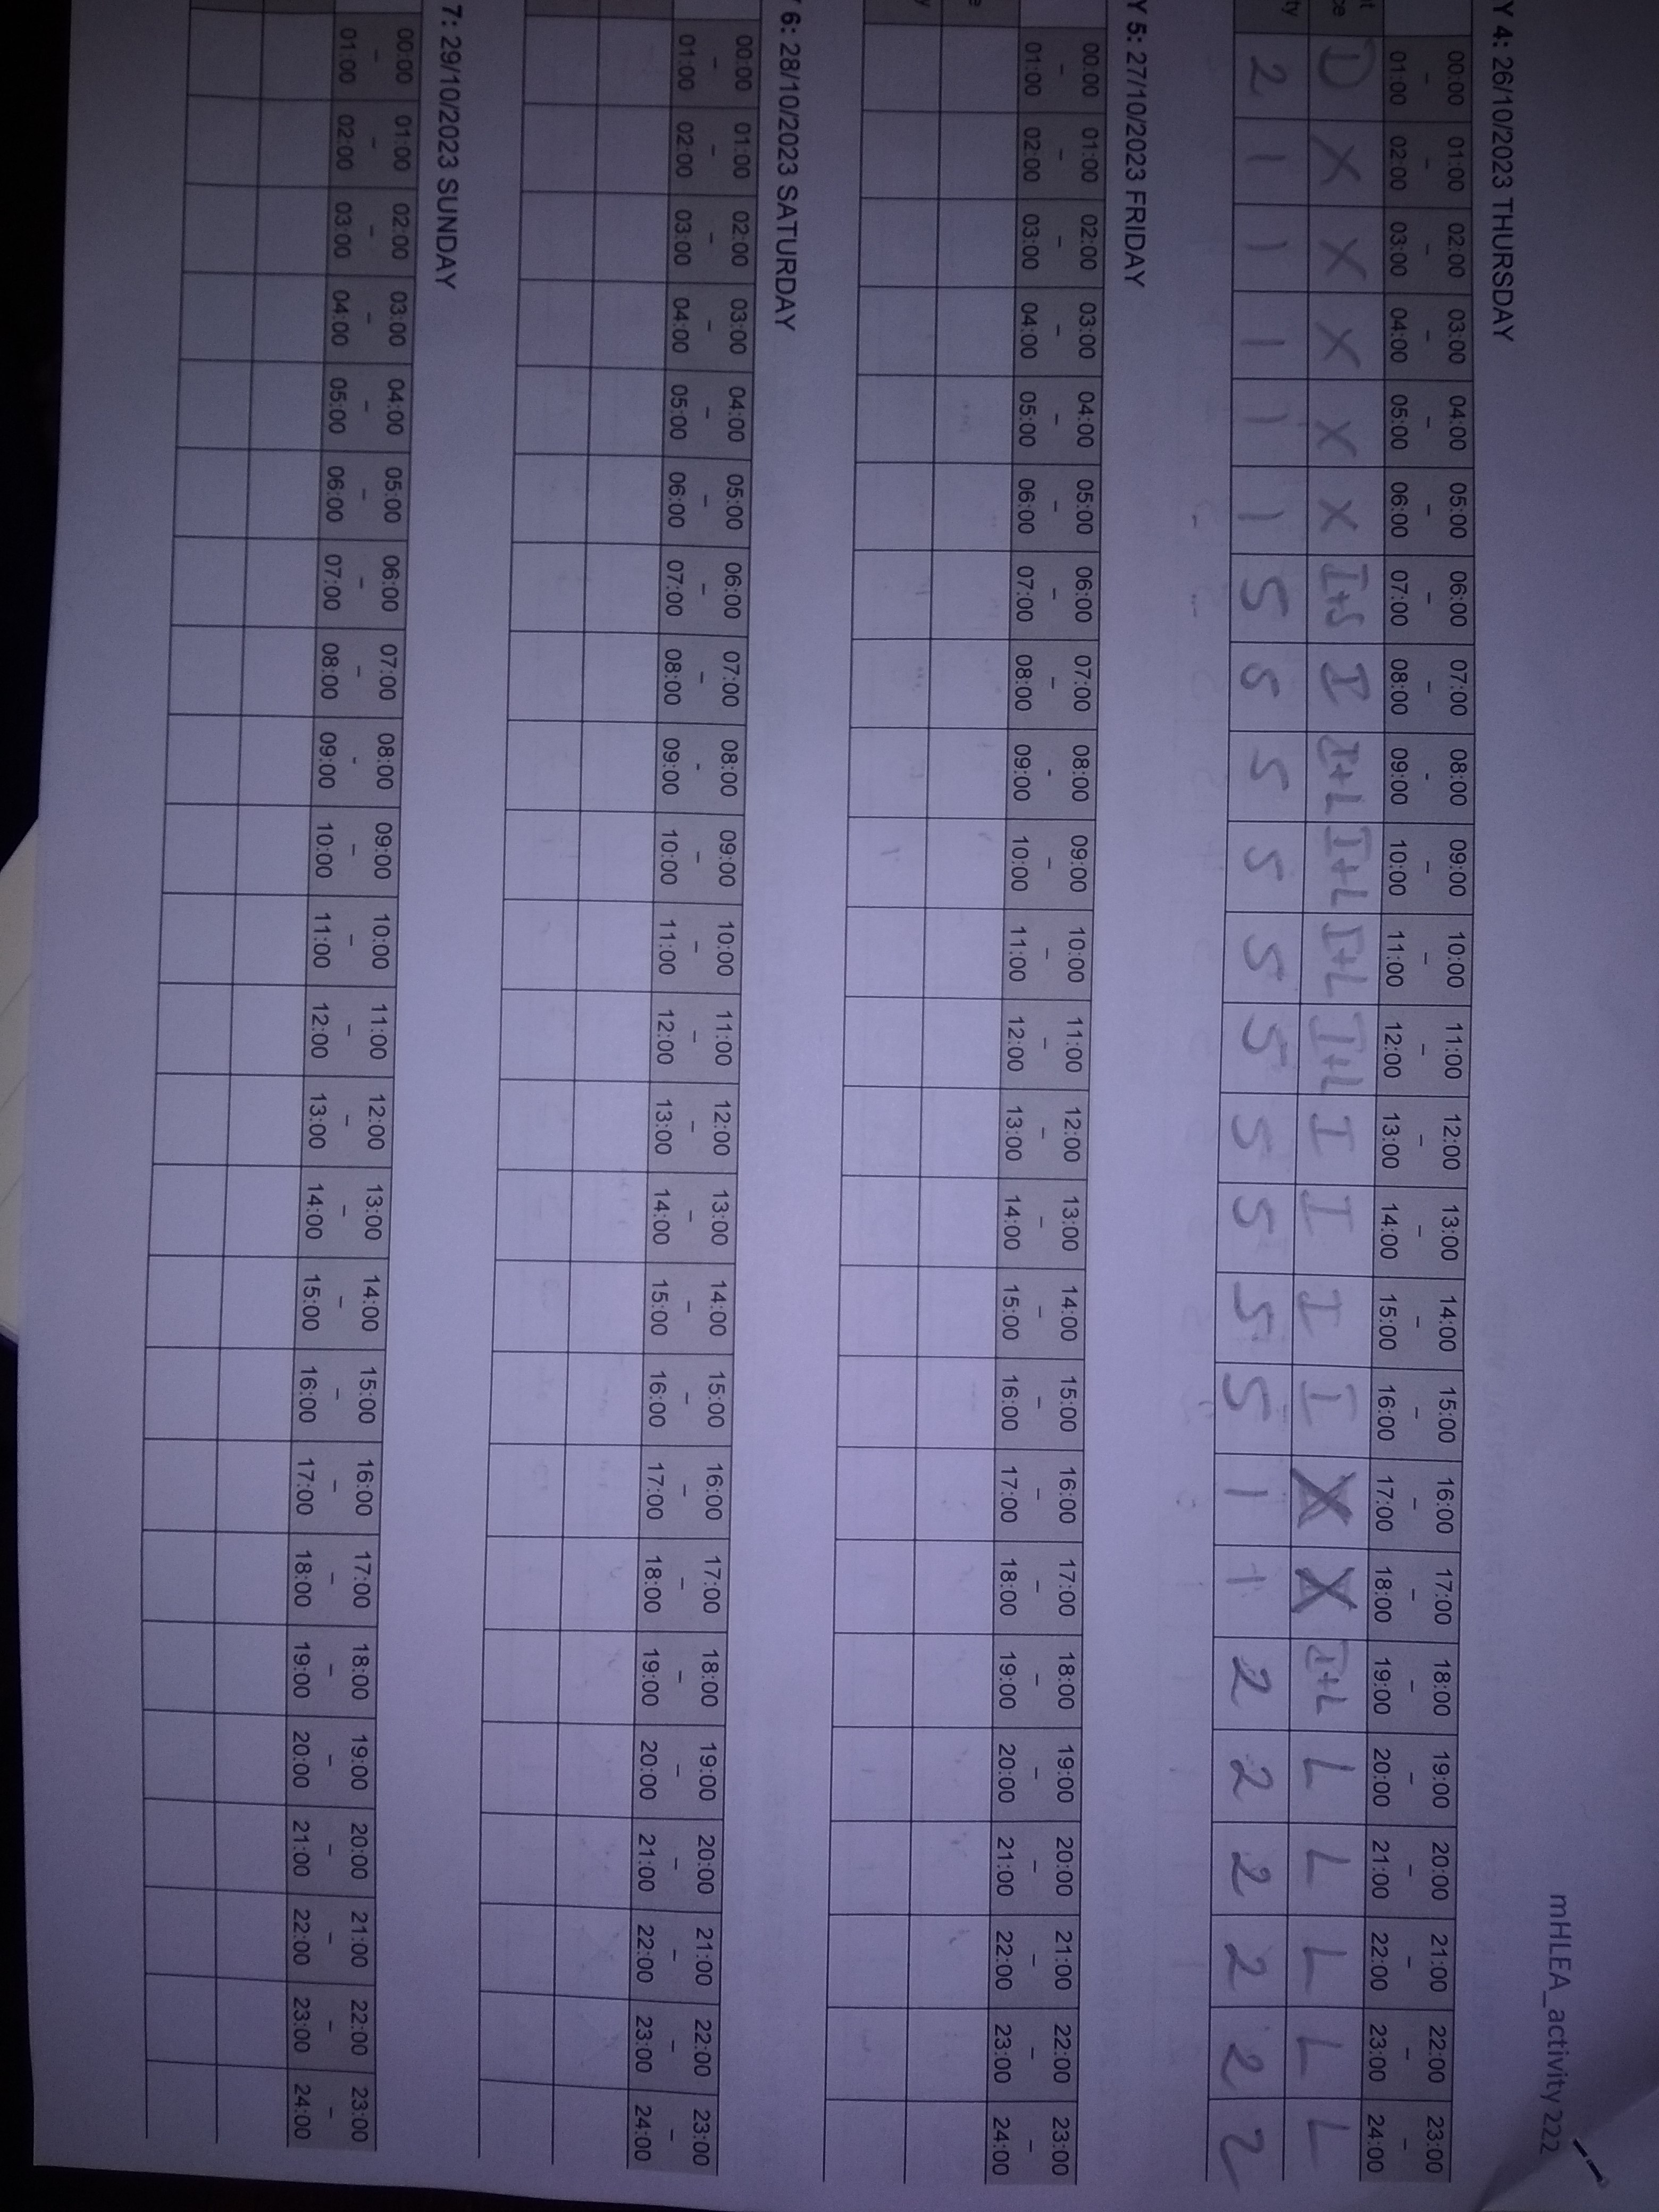 mHLEA_activity 222
Y 4: 26/10/2023 THURSDAY
00:00 – 01:00 01:00 – 02:00 02:00 – 03:00 03:00 – 04:00 04:00 – 05:00 05:00 – 06:00 06:00 – 07:00 07:00 – 08:00 08:00 - 09:00 09:00 – 10:00 10:00 – 11:00 11:00 – 12:00 12:00 – 13:00 13:00 – 14:00 14:00 – 15:00 15:00 – 16:00 16:00 – 17:00 17:00 – 18:00 18:00 – 19:00 19:00 – 20:00 20:00 – 21:00 21:00 – 22:00 22:00 – 23:00 23:00 – 24:00
X X X X X I+S I I+L I+L I+L I+L I I I I X X I+L L L L L L
ty 2 1 1 1 1 1 5 5 5 5 5 5 5 5 5 5 1 1 2 2 2 2 2 2
Y 5: 27/10/2023 FRIDAY
00:00 – 01:00 01:00 – 02:00 02:00 – 03:00 03:00 – 04:00 04:00 – 05:00 05:00 – 06:00 06:00 – 07:00 07:00 – 08:00 08:00 - 09:00 09:00 – 10:00 10:00 – 11:00 11:00 – 12:00 12:00 – 13:00 13:00 – 14:00 14:00 – 15:00 15:00 – 16:00 16:00 – 17:00 17:00 – 18:00 18:00 – 19:00 19:00 – 20:00 20:00 – 21:00 21:00 – 22:00 22:00 – 23:00 23:00 – 24:00
e
y
6: 28/10/2023 SATURDAY
00:00 – 01:00 01:00 – 02:00 02:00 – 03:00 03:00 – 04:00 04:00 – 05:00 05:00 – 06:00 06:00 – 07:00 07:00 – 08:00 08:00 - 09:00 09:00 – 10:00 10:00 – 11:00 11:00 – 12:00 12:00 – 13:00 13:00 – 14:00 14:00 – 15:00 15:00 – 16:00 16:00 – 17:00 17:00 – 18:00 18:00 – 19:00 19:00 – 20:00 20:00 – 21:00 21:00 – 22:00 22:00 – 23:00 23:00 – 24:00
7: 29/10/2023 SUNDAY
00:00 – 01:00 01:00 – 02:00 02:00 – 03:00 03:00 – 04:00 04:00 – 05:00 05:00 – 06:00 06:00 – 07:00 07:00 – 08:00 08:00 - 09:00 09:00 – 10:00 10:00 – 11:00 11:00 – 12:00 12:00 – 13:00 13:00 – 14:00 14:00 – 15:00 15:00 – 16:00 16:00 – 17:00 17:00 – 18:00 18:00 – 19:00 19:00 – 20:00 20:00 – 21:00 21:00 – 22:00 22:00 – 23:00 23:00 – 24:00